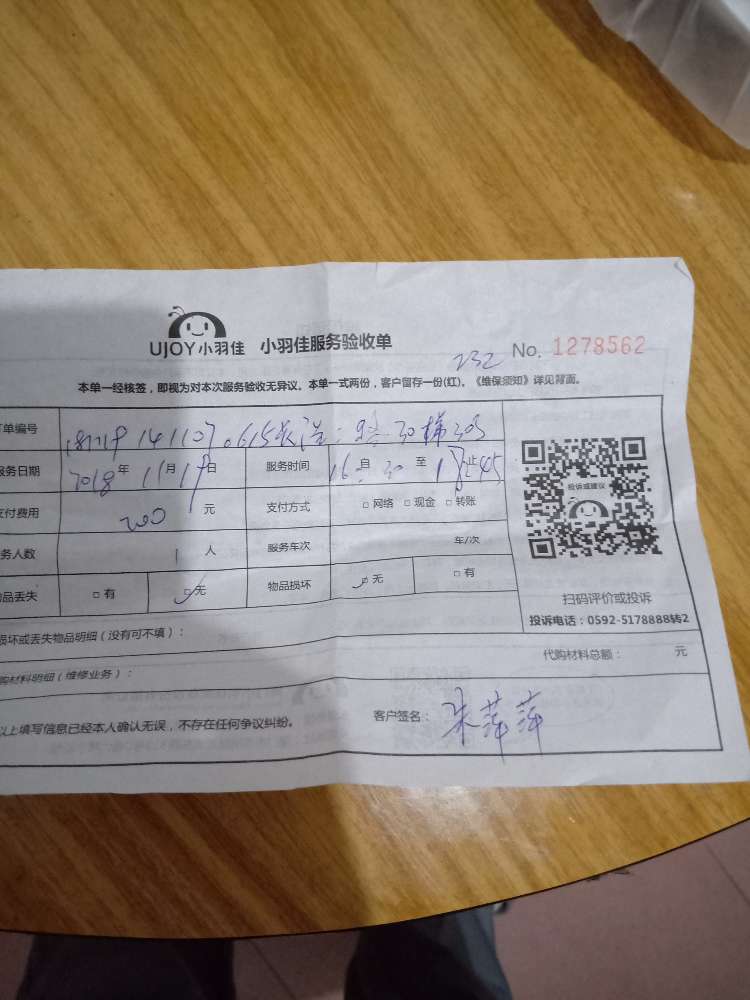 UJOY小羽佳 小羽佳服务验收单 232 No. 1278562
本单一经核签，即视为对本次服务验收无异议。本单一式两份，客户留存一份(红)。《维保须知》详见背面。
单编号
服务日期 2018年11月19日 服务时间 16自30至18止45
支付费用 200元 支付方式 □网络 □现金 □转账
务人数 1人 服务车次 车/次
品丢失 □有 □无 物品损坏 □无 □有
投诉或建议
扫码评价或投诉
投诉电话：0592-5178888转2
损坏或丢失物品明细（没有可不填）：
购材料明细（维修业务）： 代购材料总额： 元
以上填写信息已经本人确认无误，不存在任何争议纠纷。 客户签名：朱萍萍